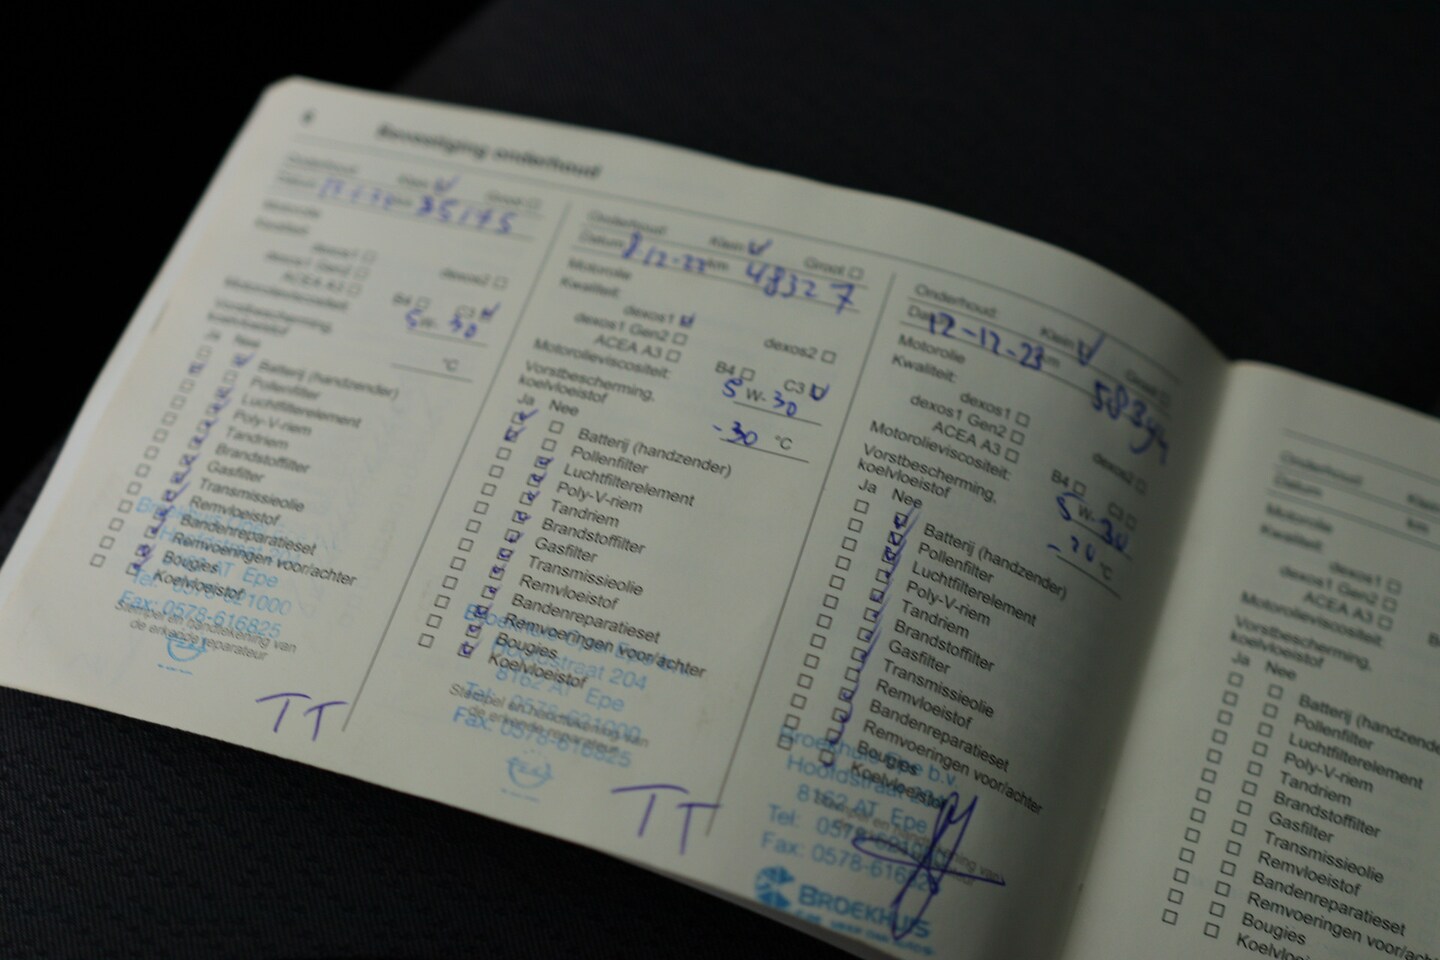 6 Bevestiging onderhoud
Onderhoud: Klein Groot
Datum km 35175
Motorolie
Kwaliteit:
dexos1
dexos1 Gen2 dexos2
ACEA A3 B4 C3
Motorolieviscositeit: 5 W- 30
Vorstbescherming, koelvloeistof °C
Ja Nee
Batterij (handzender)
Pollenfilter
Luchtfilterelement
Poly-V-riem
Tandriem
Brandstoffilter
Gasfilter
Transmissieolie
Remvloeistof
Bandenreparatieset
Remvoeringen voor/achter
Bougies
Koelvloeistof
Hoofdstraat 204
AT Epe
Tel: 0578-621000
Fax: 0578-616825
Stempel en handtekening van
de erkende reparateur
TT
Onderhoud: Klein Groot
Datum 8-12-22 km 48327
Motorolie
Kwaliteit:
dexos1
dexos1 Gen2 dexos2
ACEA A3 B4 C3
Motorolieviscositeit: 5 W- 30
Vorstbescherming,
koelvloeistof -30 °C
Ja Nee
Batterij (handzender)
Pollenfilter
Luchtfilterelement
Poly-V-riem
Tandriem
Brandstoffilter
Gasfilter
Transmissieolie
Remvloeistof
Bandenreparatieset
Remvoeringen voor/achter
Bougies
Koelvloeistof
Hoofdstraat 204
8162 AT Epe
Tel: 0578-621000
Fax: 0578-616825
Stempel en handtekening van
de erkende reparateur
TT
Onderhoud: Klein Groot
Datum 12-12-23 km
Motorolie
Kwaliteit:
dexos1
dexos1 Gen2 dexos2
ACEA A3 B4 C3
Motorolieviscositeit: 5 W- 30
Vorstbescherming,
koelvloeistof °C
Ja Nee
Batterij (handzender)
Pollenfilter
Luchtfilterelement
Poly-V-riem
Tandriem
Brandstoffilter
Gasfilter
Transmissieolie
Remvloeistof
Bandenreparatieset
Remvoeringen voor/achter
Bougies
Koelvloeistof
Broekhuis Epe b.v.
Hoofdstraat 204
8162 AT Epe
Tel: 0578-621000
Fax: 0578-616825
BROEKHUIS
Onderhoud: Klein
Datum km
Motorolie
Kwaliteit:
dexos1
dexos1 Gen2
ACEA A3
Motorolieviscositeit:
Vorstbescherming,
koelvloeistof
Ja Nee
Batterij (handzende
Pollenfilter
Luchtfilterelement
Poly-V-riem
Tandriem
Brandstoffilter
Gasfilter
Transmissieolie
Remvloeistof
Bandenreparatieset
Remvoeringen voor/ach
Bougies
Koelvloeistof